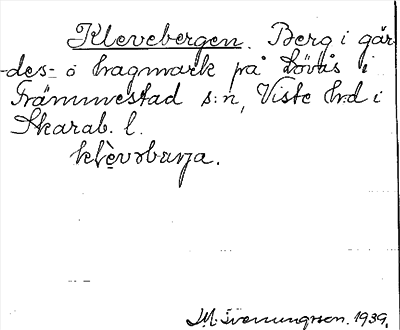 Klevebergen. Berg i går-
des- o hagmark på Lövås i
Främmestad s:n, Viste hrd i
Skarab. l.
klèvəbærja.
M. Svenungsson. 1939.